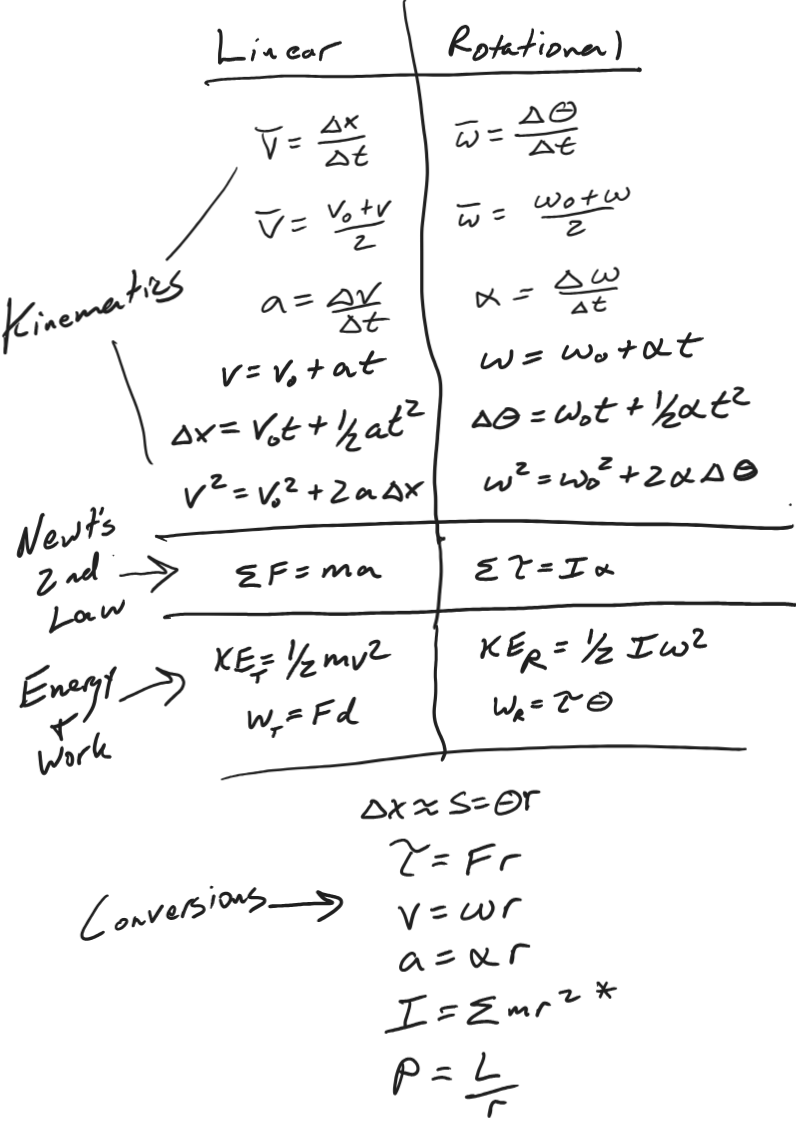 Linear Rotational
v̄ = Δx/Δt ω̄ = Δθ/Δt
v̄ = (v₀+v)/2 ω̄ = (ω₀+ω)/2
Kinematics
a = Δv/Δt α = Δω/Δt
v = v₀ + at ω = ω₀ + αt
Δx = v₀t + ½at² Δθ = ω₀t + ½αt²
v² = v₀² + 2aΔx ω² = ω₀² + 2αΔθ
Newt's
2nd
Law
ΣF = ma Στ = Iα
Energy
+
Work
KE_T = ½mv² KE_R = ½Iω²
W_T = Fd W_R = τθ
Δx ≈ s = θr
τ = Fr
Conversions →
v = ωr
a = αr
I = Σmr² *
p = L/r